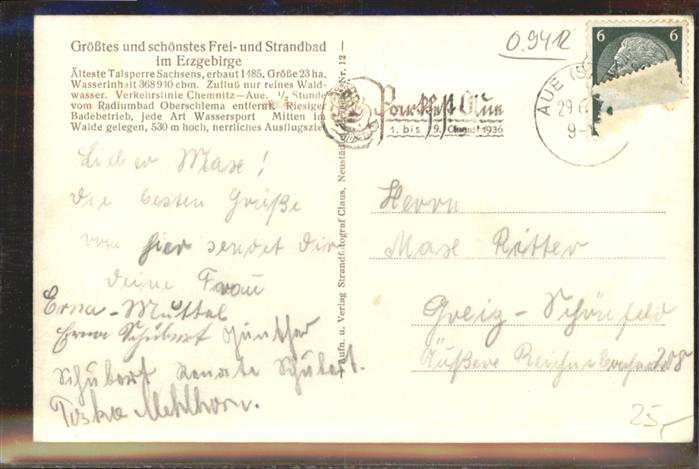 Größtes und schönstes Frei- und Strandbad
im Erzgebirge
Älteste Talsperre Sachsens, erbaut 1485. Größe 23 ha.
Wasserinhalt 368910 cbm. Zufluß nur reines Wald-
wasser. Verkehrslinie Chemnitz—Aue. ½ Stunde
vom Radiumbad Oberschlema entfernt. Riesiger
Badebetrieb, jede Art Wassersport Mitten im
Walde gelegen, 530 m hoch, herrliches Ausflugsziel
Lieber Max!
die besten Grüße
vom hier sendet Dir
deine Frau
Erna - Muttel
Erna Schubert Günther
Schubert Renate Schubert.
Toska Mehlhorn.
Aufn. u. Verlag Strandfotograf Claus, Neustädtel
Nr. 12
0.942
6 6
AUE (S
29.6
9-
Parkfest Aue
1. bis 9. August 1936
Herrn
Max Ritter
Greiz - Schönfeld
Äußere Reichenbacher 208
25,-